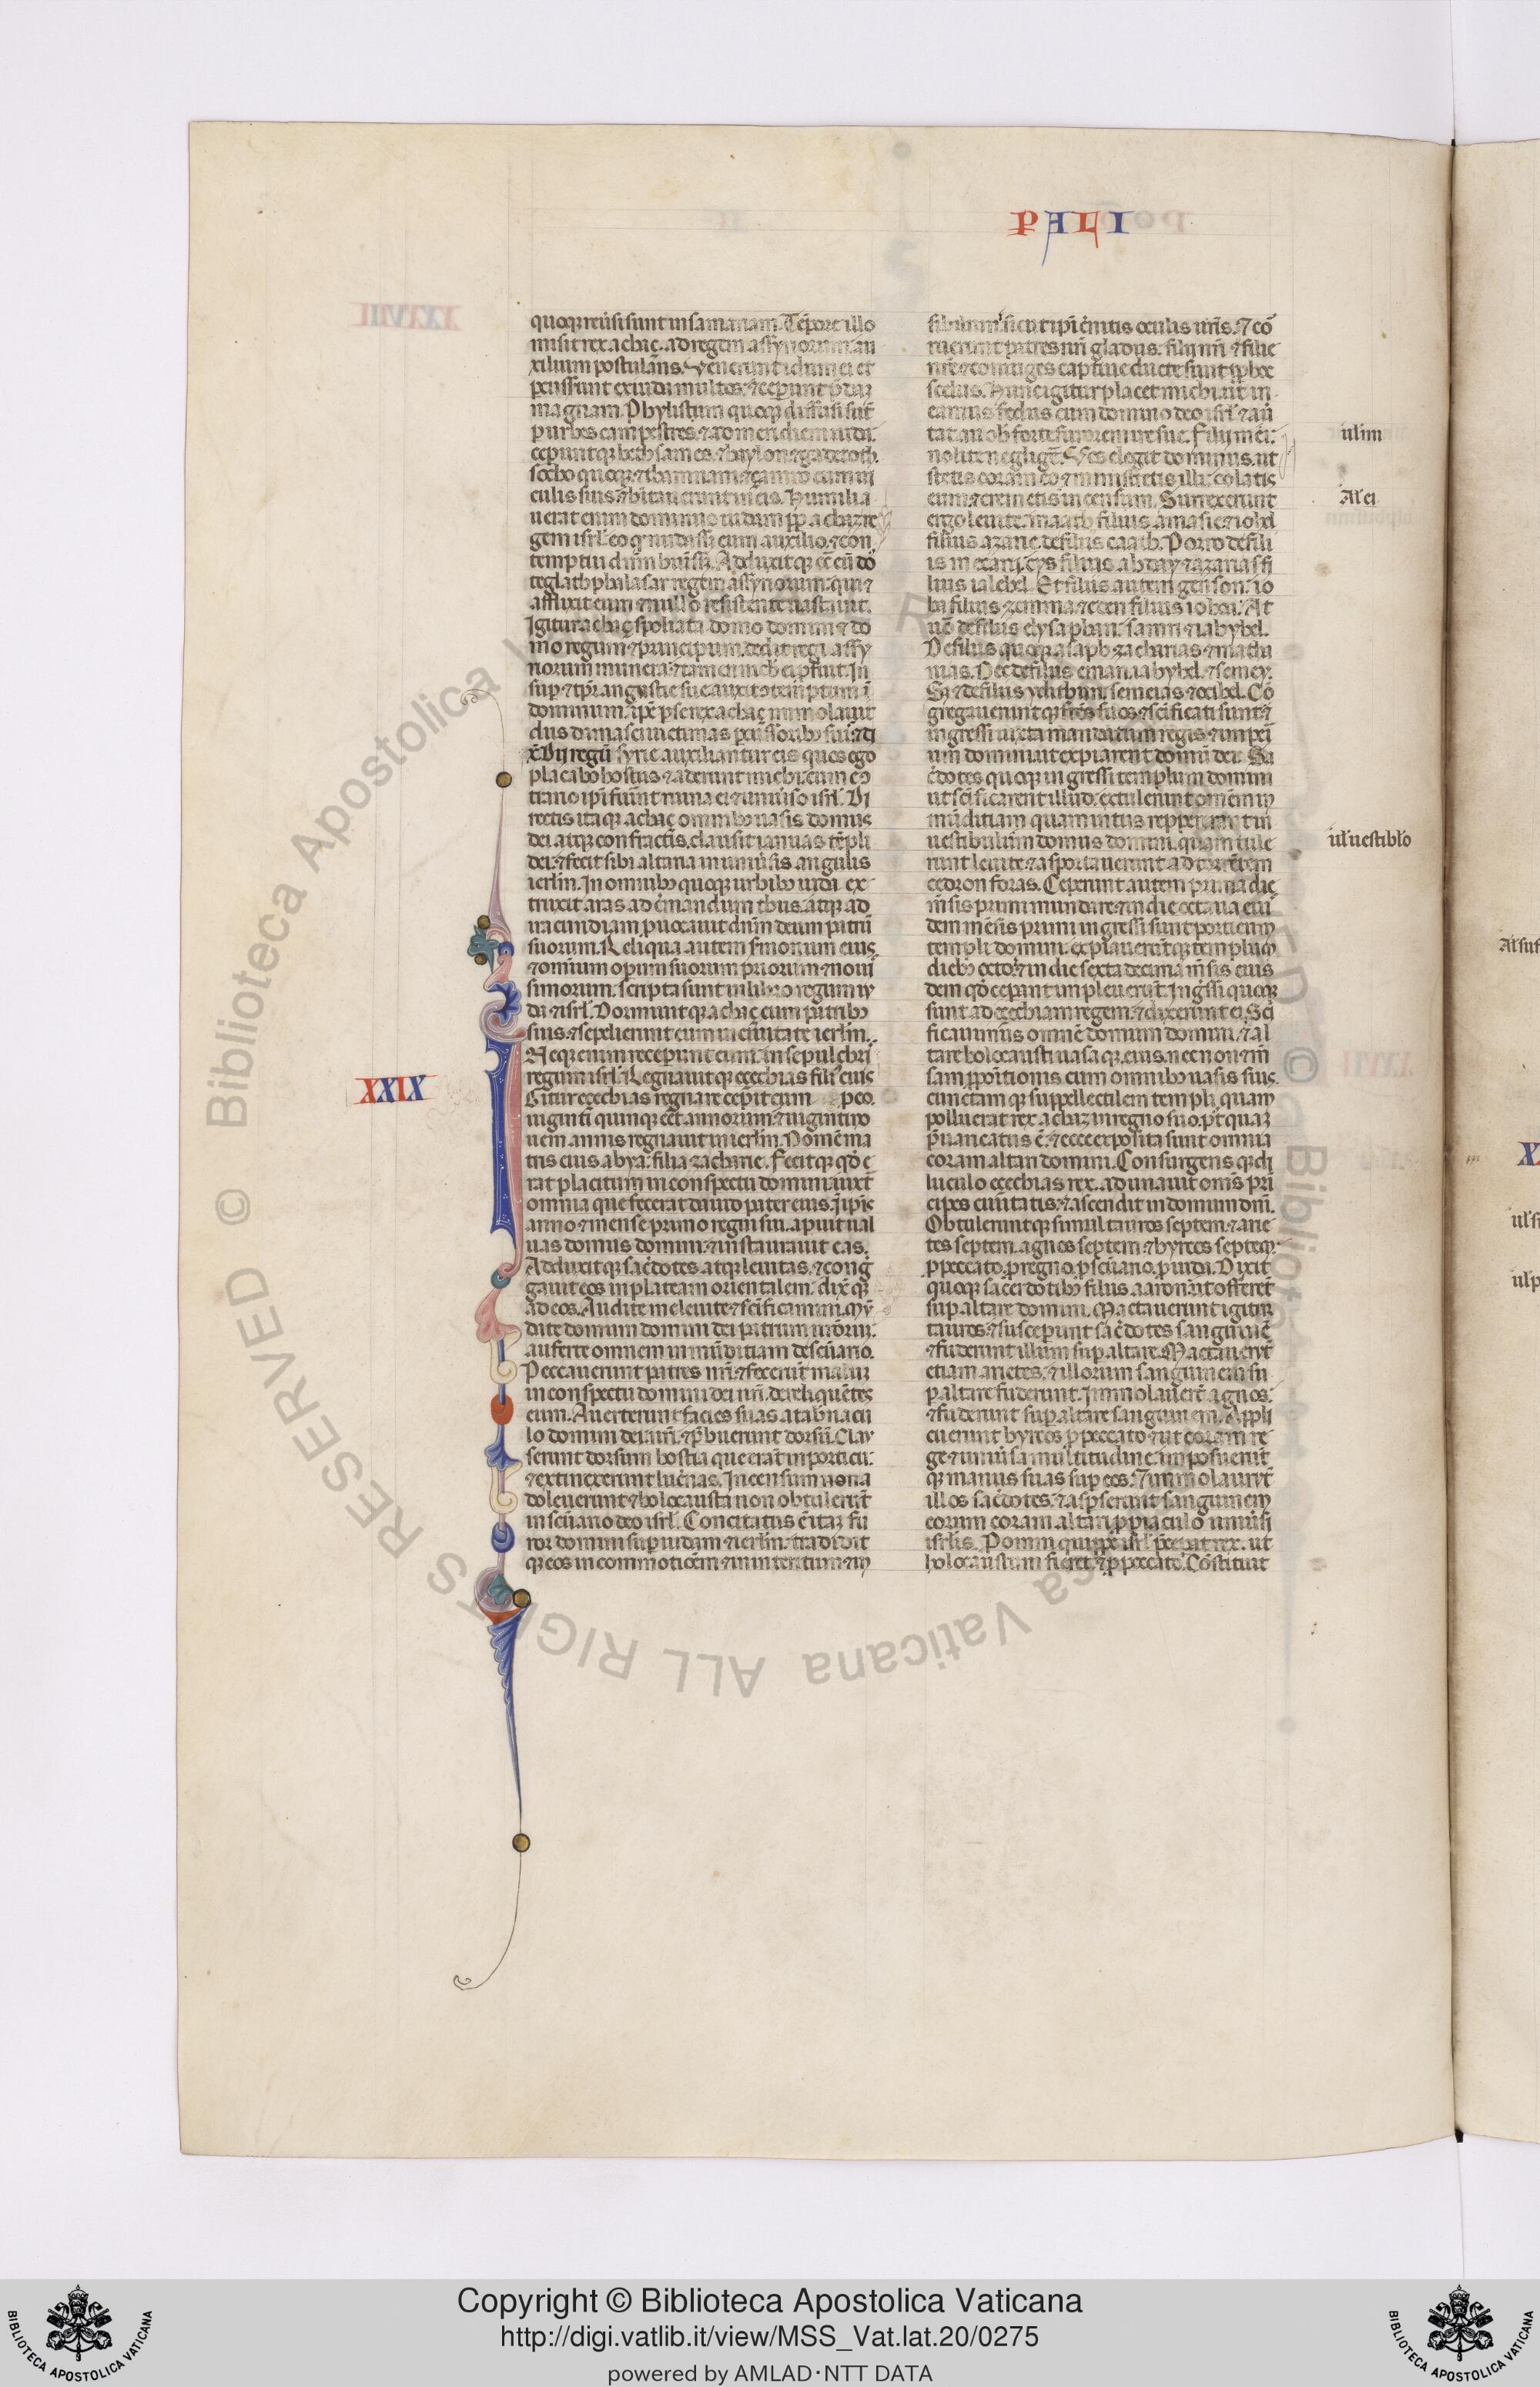 PALI
quoq; reuersi sunt in samariam. Tēpore illo
misit rex achaç. ad regem assyriorum au
xilium postulans. Venerunt idumei et
percusserunt ex iuda multos. & ceperunt predaz
magnam. Phylistiim quoq; diffusi sūt
per urbes campestres. & ad meridiem iuda.
ceperuntq; bethsames. & haylon & gaderoth.
culis suis. & habitauerunt in eis. Humilia
uerat enim dominus iudam propter achaz re
gem isrl. eo q̄ nudasset eum auxilio. & con
temptui dn̄m habuisset. Adduxitq; contra eū do
teglathphalasar regem assyriorum. qui &
afflixit eum & nullo resistente uastauit.
Igitur achaç spoliata domo domini & do
mo regum & principum. dedit regi assy
norum munera. & tamen nichil ei profuit. In
super & tempore angustie sue auxit contemptum ī
dominum. ipse per se rex achaç immolauit
diis damasci uictimas percussoribus suis. & di
xit. Dii regū syrie auxiliantur eis quos ego
placabo hostiis & aderunt michi. cum econ
trario ipsi fuerint ruina ei & uniuerso isrl. Di
reptis itaq; achaç omnibus uasis domus
dei atq; confractis. clausit ianuas tēpli
dei. & fecit sibi altaria in uniuersis angulis
ierlm. In omnibus quoq; urbibus iuda ex
truxit aras ad cremandum thus. atq; ad
iracundiam prouocauit dn̄m deum patrū
suorum. Reliqua autem sermonum eius.
& omnium operum suorum priorum & noui
simorum. scripta sunt in libro regum iu
da & isrl. Dormiuitq; achaç cum patribus
suis. & sepelierunt eum in ciuitate ierlm.
Neq; enim receperunt eum in sepulchri
regum isrl. Regnauitq; eçechias fili' eius
XXIX
Gitur eçechias regnare cepit cum pro eo.
uiginti quinq; esset annorum. & uiginti no
uem annis regnauit in ierlm. Nomē ma
tris eius abya. filia zacharie. Fecitq; qd̄ e
rat placitum in conspectu domini. iuxt̄
omnia que fecerat dauid pater eius. Ipse
anno & mense primo regni sui. aperuit ual
uas domus domini. & instaurauit eas.
Adduxitq; sacerdotes atq; leuitas. & cong
gauit eos in plateam orientalem. dixitq;
ad eos. Audite me leuite & sanctificamini. mū
date domum domini dei patrum uestrorum.
auferte omnem inmunditiam de sanctuario.
Peccauerunt patres nr̄i. & fecerunt maluz
in conspectu domini dei nr̄i. derelinquētes
eum. Auerterunt facies suas a tabernacu
lo domini dei nr̄i. & prebuerunt dorsū. Clau
serunt dorsum hostia que erant in porticu.
& extinxerunt lucernas. Incensum non a
doleuerunt. & holocausta non obtulerūt
in sanctuario deo isrl. Concitatus est itaq; fu
ror domini super iudam & ierlm. tradidit
q; eos in commotionem & in interitum & in
sibilum. sicut ipsi cernitis oculis uris. Et co
ruerunt patres nr̄i gladiis. filii nr̄i & filie
nr̄e & coniuges captiue ducte sunt propter hoc
scelus. Nunc igitur placet michi ut in
eamus fedus cum domino deo isrl. & auer
tat a nobis furorem ire sue. Filii mei.
nolite negligere. Vos elegit dominus. ut
stetis coram eo & ministretis illi. colatis
eum & cremetis incensum. Surrexerunt
ergo leuite. maath filius amasie & iohel
filius azarie de filiis caath. Porro de fili
is merari. cys filius abday & azarias fi
lius ialelel. De filiis autem gerson. io
ha filius zemma. & eden filius iohaa. At
uero de filiis elysaphan. samri & iahyhel.
De filiis quoq; asaph zacharias & matha
nias. Nec de filiis eman. iahyhel & semey.
Sed & de filiis ydithun. semeias & ozihel. Cō
gregaueruntq; fratres suos. & sanctificati sunt &
ingressi iuxta mandatum regis & imperi
um domini ut expiarent domū dei. Sa
cerdotes quoq; ingressi templum domini
ut sanctificarent illud. extulerunt omnem in
mūditiam quam intus reppererunt in
uestibulum domus domini. quam tule
runt leuite. & asportauerunt ad torrentem
cedron foras. Ceperunt autem prima die
mensis primi mundare. & in die octaua eius
dem mensis primi ingressi sunt porticum
templi domini. expiaueruntq; templum
diebus octo. & in die sexta decima mensis eius
dem qd̄ ceperant impleuerunt. Ingressi quoq;
sunt ad eçechiam regem. & dixerunt ei. Sancti
ficauimus omnē domum domini. & al
tare holocausti uasaq; eius. necnon & mē
sam propositionis cum omnibus uasis suis.
cunctamq; suppellectilem templi. quam
polluerat rex achaz in regno suo. postquaz
preuaricatus est. & ecce exposita sunt omnia
coram altari domini. Consurgensq; di
luculo eçechias rex. adunauit omnes prin
cipes ciuitatis. & ascendit in domum dn̄i.
Obtuleruntq; simul tauros septem. & arie
tes septem. agnos septem & hyrcos septem.
pro peccato. pro regno. pro sanctuario. pro iuda. Dixit
quoq; sacerdotibus filiis aaron ut offerret
super altare domini. Mactauerunt igitur
tauros. & susceperunt sacerdotes sanguinē
& fuderunt illum super altare. Mactauerūt
etiam arietes. & illorum sanguinem su
per altare fuderunt. Immolauerūt agnos.
& fuderunt super altare sanguinem. Appli
cuerunt hyrcos pro peccato & ut coram re
ge & uniuersa multitudine. imposuerunt
q; manus suas super eos. & immolauerūt
illos sacerdotes. & asperserunt sanguinem
eorum coram altari. pro piaculo uniuersi
isrlis. Pro omni quippe isrl preceperat rex. ut
holocaustum fieret. & pro peccato. Constituit
ul im
ul uestiblo
Copyright © Biblioteca Apostolica Vaticana
http://digi.vatlib.it/view/MSS_Vat.lat.20/0275
powered by AMLAD·NTT DATA
BIBLIOTECA APOSTOLICA VATICANA
BIBLIOTECA APOSTOLICA VATICANA
© Biblioteca Apostolica Vaticana ALL RIGHTS RESERVED